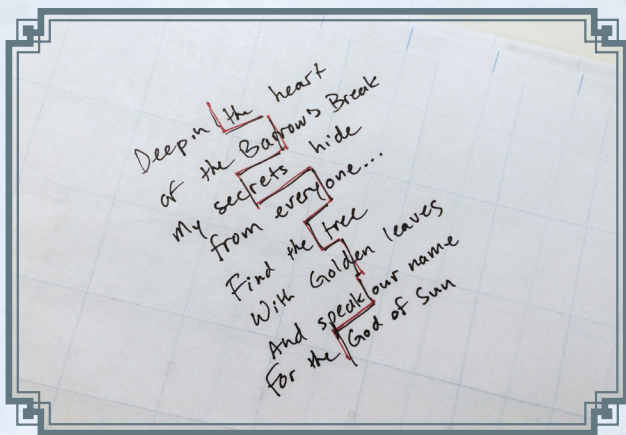 Deep in the heart
of the Barrow's Break
My secrets hide
from everyone...
Find the tree
With Golden leaves
And speak our name
For the God of Sun